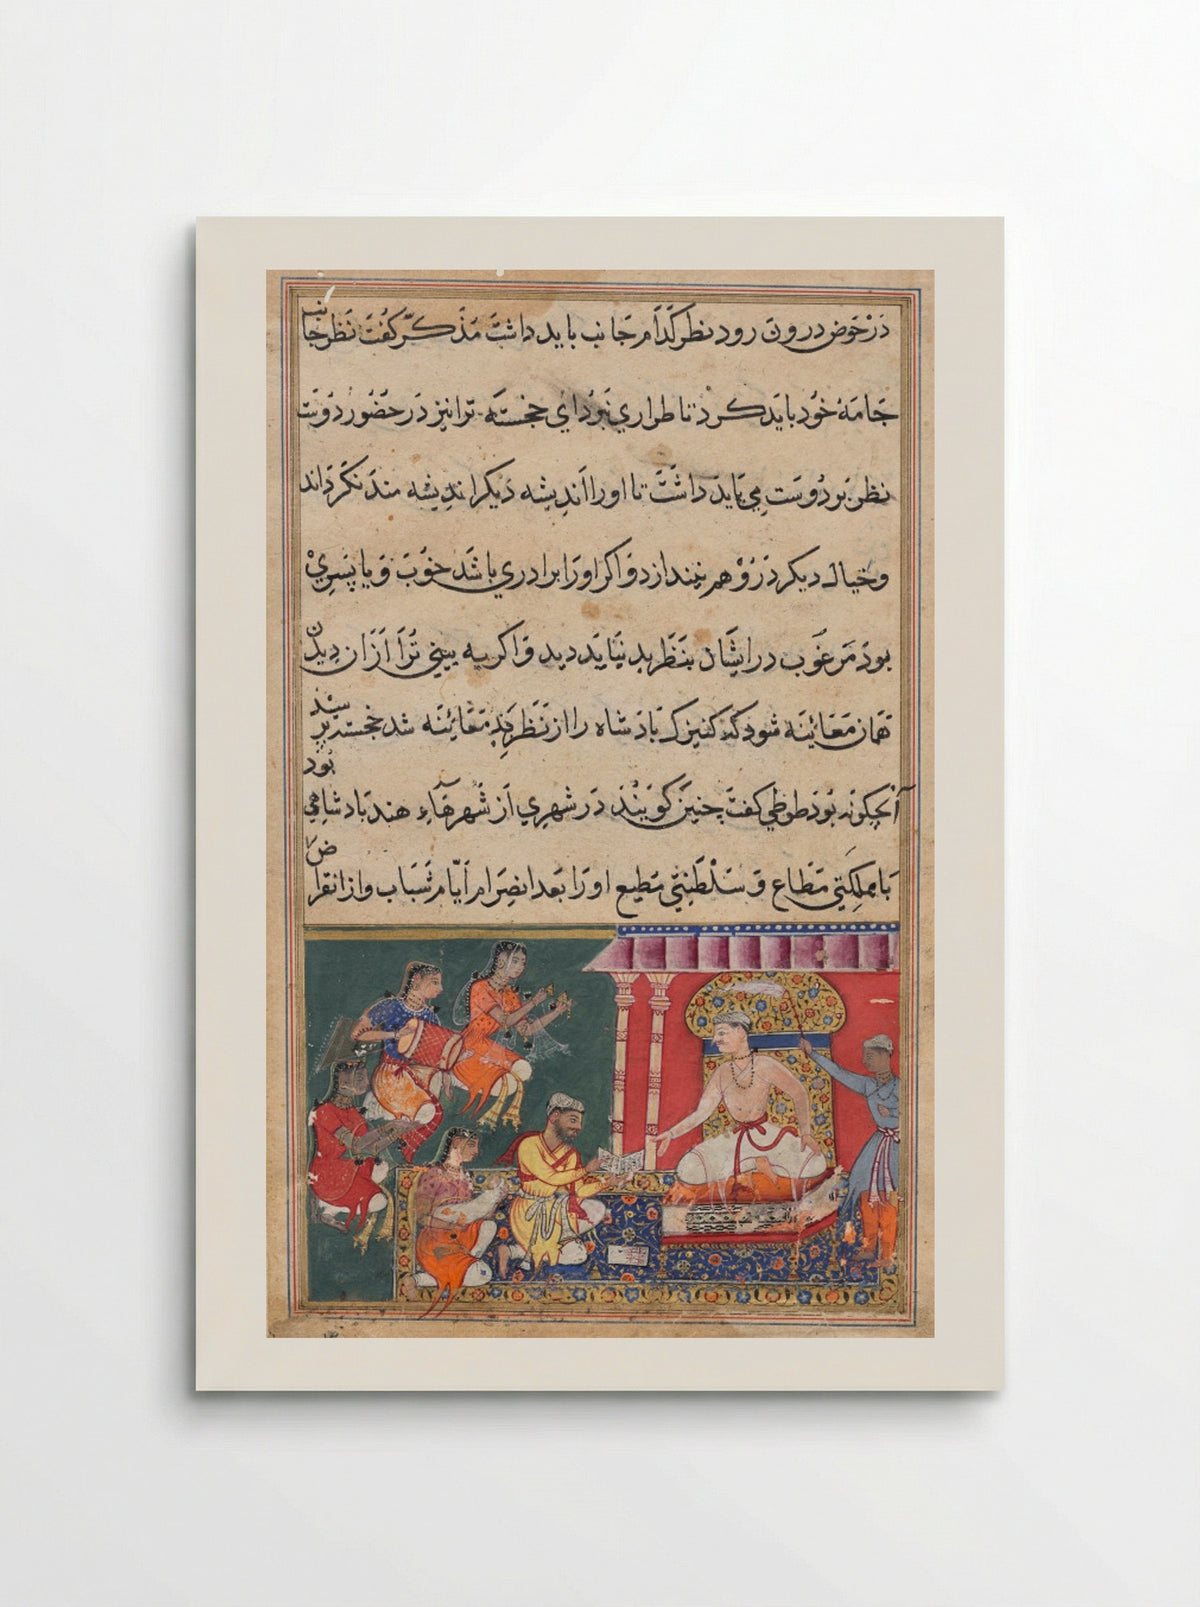 در حوض درون رود نظر کدام جانب باید داشت مذکر کفت نظر جانب
جامهٔ خود باید کرد تا طراری نبرد ای خجسته ترا نیز در حضور دوست
نظر بر دوست می باید داشت تا او را اندیشه دیکر اندیشه مند نکرداند
و خیال دیکر در وهم نیندازد و اکر او را برادری باشد خوب و یا پسری
بود مرغوب در ایشان بنظر بد نباید دید و اکر به بینی ترا از ان دیدن
همان معائنه شود که کنیزک بادشاه را از نظر بد معائنه شد خجسته پرسید
آنچکونه بود طوطی کفت چنین کویند در شهری از شهرهاء هند بادشاهی بود
با مملکتی مطاع و سلطنتی مطیع او را بعد انصرام ایام شباب و از انقراض